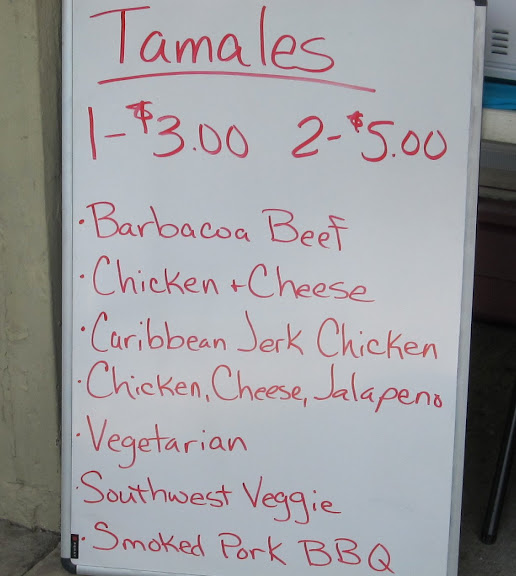 Tamales
1-$3.00 2-$5.00
·Barbacoa Beef
·Chicken + Cheese
·Caribbean Jerk Chicken
·Chicken, Cheese, Jalapeno
·Vegetarian
·Southwest Veggie
·Smoked Pork BBQ